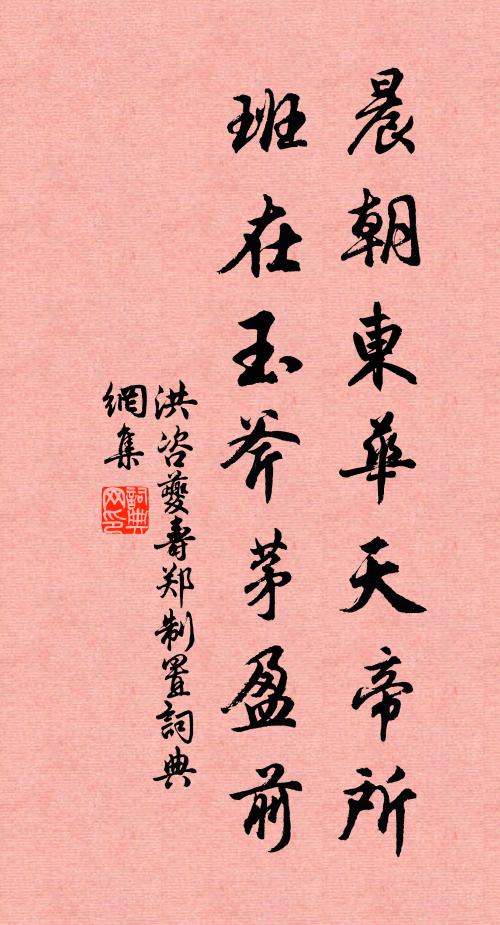 晨朝東華天帝所
班在玉斧茅盈前
洪咨夔壽郑制置詞典
網集
詞典网印